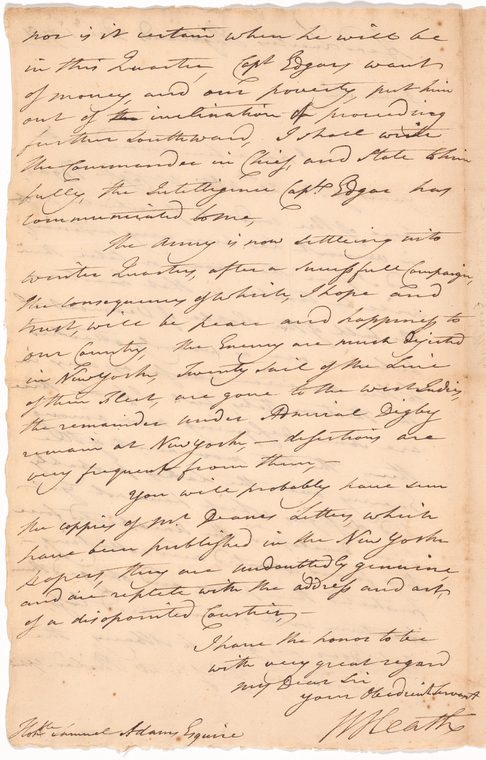 nor is it certain when he will be
in this Quarter, Capt Edgars want
of money, and our poverty, put him
out of the inclination of proceeding
further Southward, I shall write
the Commander in Chief, and State to him
fully, the Intelligence Capt. Edgar has
communicated to me,
the Army is now settling into
winter Quarters, after a successfull Campaign,
the consequences of which, I hope and
trust, will be peace and happiness to
our Country, the Enemy are much dejected
in New York, Twenty Sail of the Line
of their Fleet, are gone to the west Indies,
the remainder under Admiral Digby
remain at New York, – desertions are
very frequent from them, –
You will probably have seen
the coppies of Mr. Deanes Letters, which
have been published in the New York
papers, they are undoubtedly genuine
and are replete with the address and art
of a disopointed Courtier, –
I have the honor to be
with very great regard
My Dear Sir
your Obedient Servant
W Heath
Honble Samuel Adams Esquire